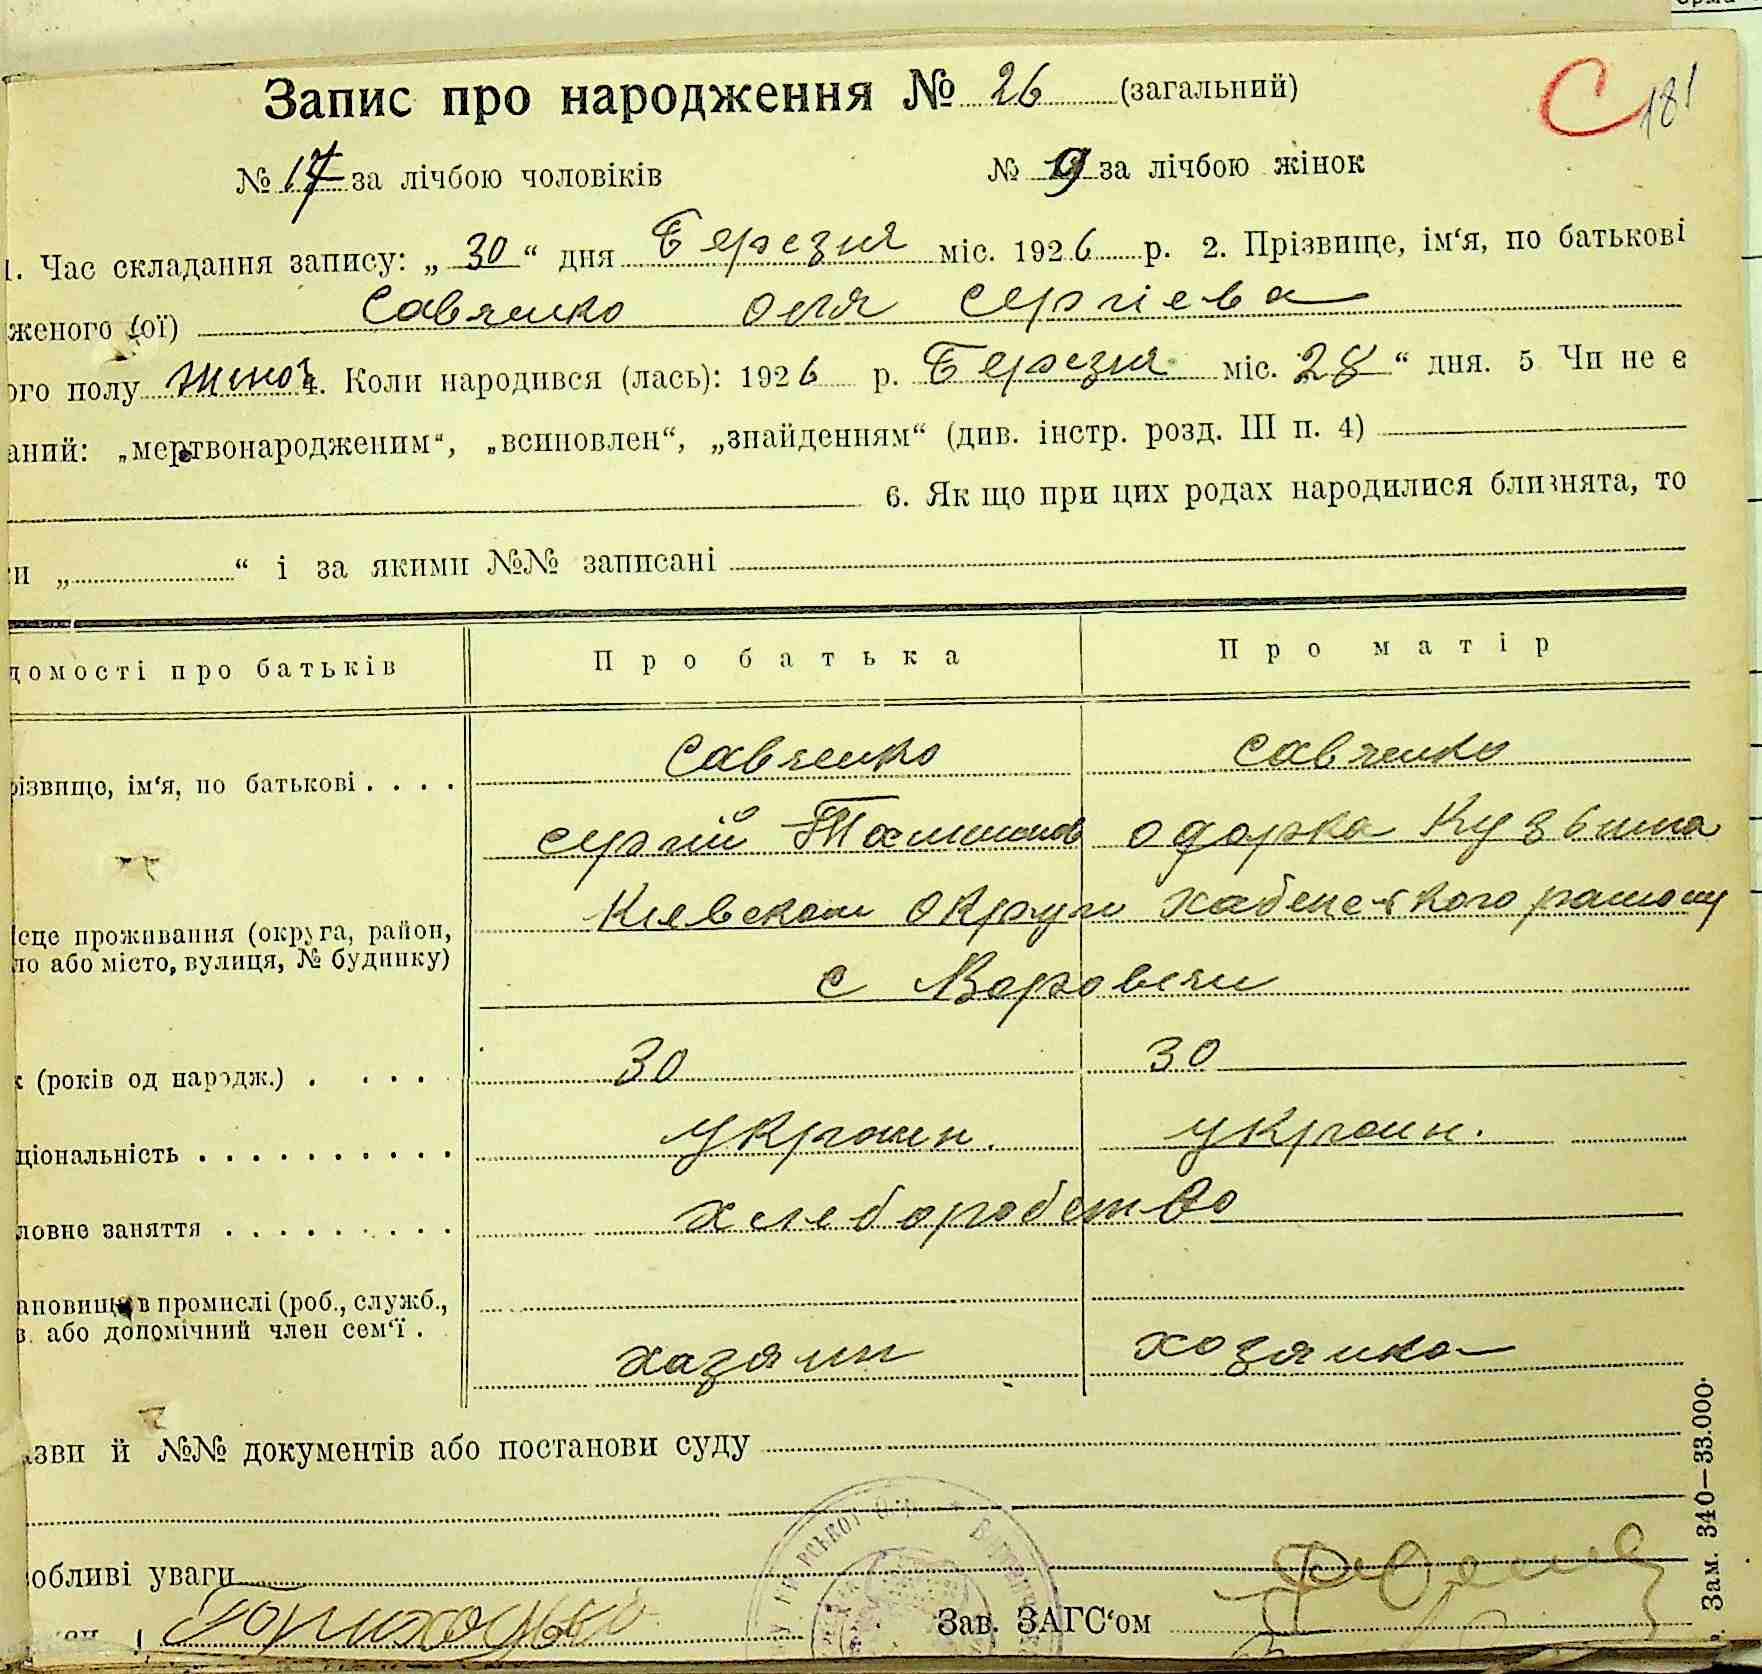 Запис про народження № 26 (загальний)
181
№ 17 за лічбою чоловіків № 9 за лічбою жінок
1. Час складання запису: „30“ дня Березня міс. 1926 р. 2. Прізвище, ім‘я, по батькові
женого (ої) Савченко Оля Сергіева
ого полу жіноч 4. Коли народився (лась): 1926 р. Березня міс. 28“ дня. 5 Чи не є
аний: „мертвонародженим“, „всиновлен“, „знайденням“ (див. інстр. розд. III п. 4)
6. Як що при цих родах народилися близнята, то
и „ “ і за якими №№ записані
домості про батьків Про батька Про матір
різвище, ім‘я, по батькові Савченко Савченко
сергій одарка Кузьмина
ісце проживання (округа, район,
ло або місто, вулиця, № будинку)
Киевскои округи хабенского раиону
с Воровичи
к (років од народж.) 30 30
ціональність украин. украин.
ловне заняття хлеборобство
ановище в промислі (роб., служб.,
в. або допомічний член сем‘ї .
хазяин хозяика
азви й №№ документів або постанови суду
обливі уваги
Зав. ЗАГС‘ом
Зам. 340—33.000.